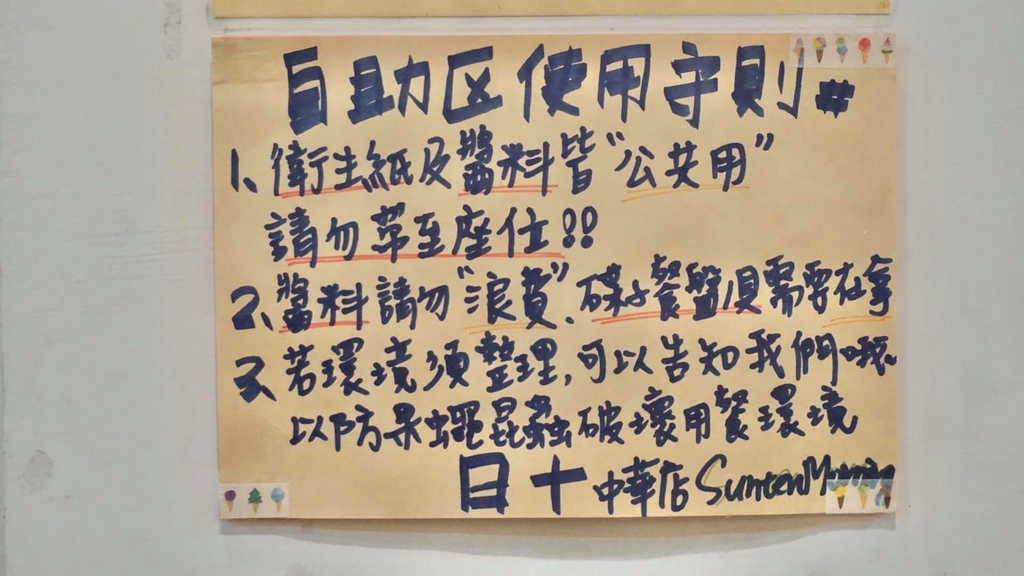 自助区使用守則#
1、衛生紙及醬料皆"公共用"
請勿帶至座位!!
2、醬料請勿"浪費"、碟子餐盤具需要在拿
3、若環境須整理,可以告知我們哦、
以防果蠅昆蟲破壞用餐環境
日十 中華店 Sunten